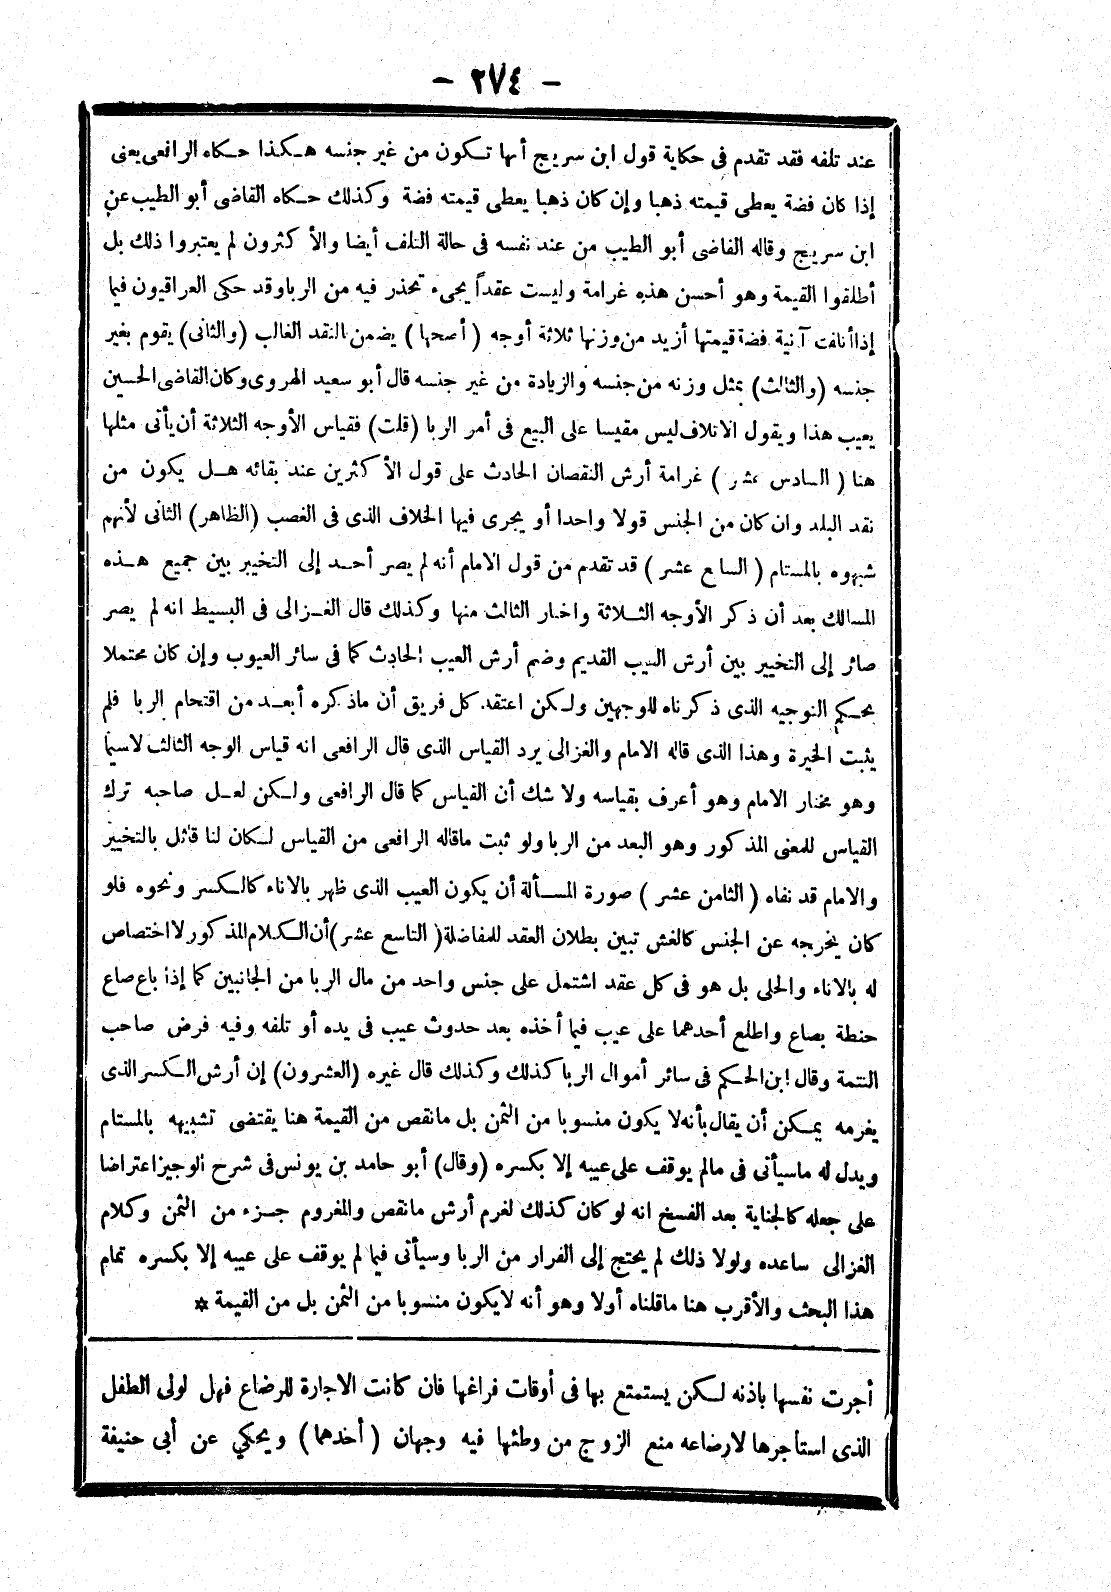 - ٢٧٤ -
عند تلفه فقد تقدم فى حكاية قول ابن سريج أنها تكون من غير جنسه هكذا حكاه الرافعى يعنى
إذا كان فضة يعطى قيمته ذهبا وإن كان ذهبا يعطى قيمته فضة وكذلك حكاه القاضى أبو الطيب عن
ابن سريج وقاله القاضى أبو الطيب من عند نفسه فى حالة التلف أيضا والأكثرون لم يعتبروا ذلك بل
أطلقوا القيمة وهو أحسن هذه غرامة وليست عقداً يجىء تحذر فيه من الربا وقد حكى العراقيون فيما
إذا أتلفت آنية فضة قيمتها أزيد من وزنها ثلاثة أوجه ( أصحها ) يضمن النقد الغالب (والثانى) يقوم بغير
جنسه (والثالث) بمثل وزنه من جنسه والزيادة من غير جنسه قال أبو سعيد الهروى وكان القاضى الحسين
يعيب هذا ويقول الاتلاف ليس مقيسا على البيع فى أمر الربا (قلت) فقياس الأوجه الثلاثة أن يأتى مثلها
هنا ( السادس عشر ) غرامة أرش النقصان الحادث على قول الأكثرين عند بقائه هل يكون من
نقد البلد وان كان من الجنس قولا واحدا أو يجرى فيها الخلاف الذى فى الغصب (الظاهر) الثانى لأنهم
شبهوه بالمستام ( السابع عشر ) قد تقدم من قول الامام أنه لم يصر أحد إلى التخيير بين جميع هذه
المسالك بعد أن ذكر الأوجه الثلاثة واختار الثالث منها وكذلك قال الغزالى فى البسيط انه لم يصر
صائر إلى التخيير بين أرش العيب القديم وضم أرش العيب الحادث كما فى سائر العيوب وإن كان محتملا
بحكم التوجيه الذى ذكرناه للوجهين ولكن اعتقد كل فريق أن ماذكره أبعد من اقتحام الربا فلم
يثبت الخيرة وهذا الذى قاله الامام والغزالى يرد القياس الذى قال الرافعى انه قياس الوجه الثالث لاسيما
وهو مختار الامام وهو أعرف بقياسه ولا شك أن القياس كما قال الرافعى ولكن لعل صاحبه ترك
القياس للمعنى المذكور وهو البعد من الربا ولو ثبت ماقاله الرافعى من القياس لكان لنا قائل بالتخيير
والامام قد نفاه ( الثامن عشر ) صورة المسألة أن يكون العيب الذى ظهر بالاناء كالكسر ونحوه فلو
كان يخرجه عن الجنس كالغش تبين بطلان العقد للمفاضلة ( التاسع عشر ) أن الكلام المذكور لا اختصاص
له بالاناء والحلى بل هو فى كل عقد اشتمل على جنس واحد من مال الربا من الجانبين كما إذا باع صاع
حنطة بصاع واطلع أحدهما على عيب فيما أخذه بعد حدوث عيب فى يده أو تلفه وفيه فرض صاحب
التتمة وقال ابن الحكم فى سائر أموال الربا كذلك وكذلك قال غيره (العشرون) إن أرش الكسر الذى
يغرمه يمكن أن يقال بأنه لا يكون منسوبا من الثمن بل مانقص من القيمة هنا يقتضى تشبيهه بالمستام
ويدل له ماسيأتى فى مالم يوقف على عيبه إلا بكسره (وقال) أبو حامد بن يونس فى شرح الوجيز اعتراضا
على جعله كالجناية بعد الفسخ انه لو كان كذلك لغرم أرش مانقص والمغروم جزء من الثمن وكلام
الغزالى ساعده ولولا ذلك لم يحتج إلى الفرار من الربا وسيأتى فيما لم يوقف على عيبه إلا بكسره تمام
هذا البحث والأقرب هنا ماقلناه أولا وهو أنه لايكون منسوبا من الثمن بل من القيمة *
أجرت نفسها باذنه لكن يستمتع بها فى أوقات فراغها فان كانت الاجارة للرضاع فهل لولى الطفل
الذى استأجرها لارضاعه منع الزوج من وطئها فيه وجهان ( أحدهما ) ويحكي عن أبى حنيفة